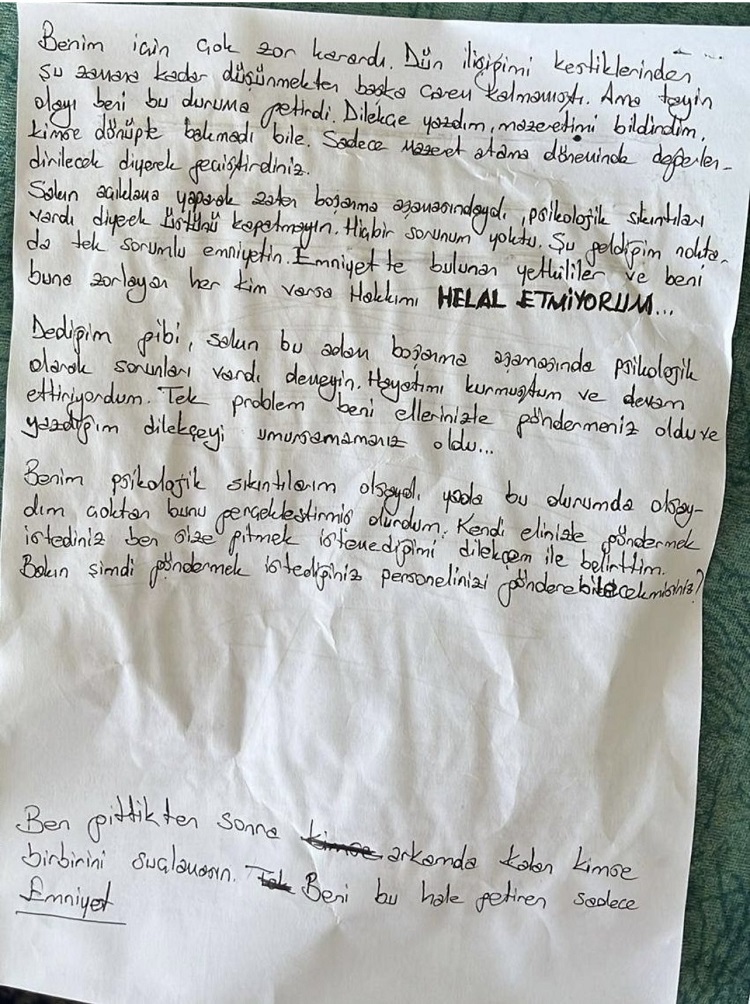 Benim için çok zor karardı. Dün ilişiğimi kestiklerinden
şu zamana kadar düşünmekten başka çarem kalmamıştı. Ama tayin
olayı beni bu duruma getirdi. Dilekçe yazdım, mazeretimi bildirdim,
kimse dönüpte bakmadı bile. Sadece mazeret atama döneminde değerlen-
dirilecek diyerek geçiştirdiniz.
Sakın açıklama yaparak zaten boşanma aşamasındaydı, psikolojik sıkıntıları
vardı diyerek üstünü kapatmayın. Hiçbir sorunum yoktu. Şu geldiğim nokta-
da tek sorumlu emniyetin. Emniyette bulunan yetkililer ve beni
buna zorlayan her kim varsa Hakkımı HELAL ETMİYORUM...
Dediğim gibi, sakın bu adam boşanma aşamasında psikolojik
olarak sorunları vardı demeyin. Hayatımı kurmuştum ve devam
ettiriyordum. Tek problem beni ellerinizle göndermeniz oldu ve
yazdığım dilekçeyi umursamamanız oldu...
Benim psikolojik sıkıntılarım olsaydı yada bu durumda olsay-
dım çoktan bunu gerçekleştirmiş olurdum. Kendi elinizle göndermek
istediniz ben size gitmek istemediğimi dilekçem ile belirttim.
Bakın şimdi göndermek istediğiniz personelinizi gönderebilecekmisiniz?
Ben gittikten sonra kimse arkamda kalan kimse
birbirini suçlamasın. Tek Beni bu hale getiren sadece
Emniyet